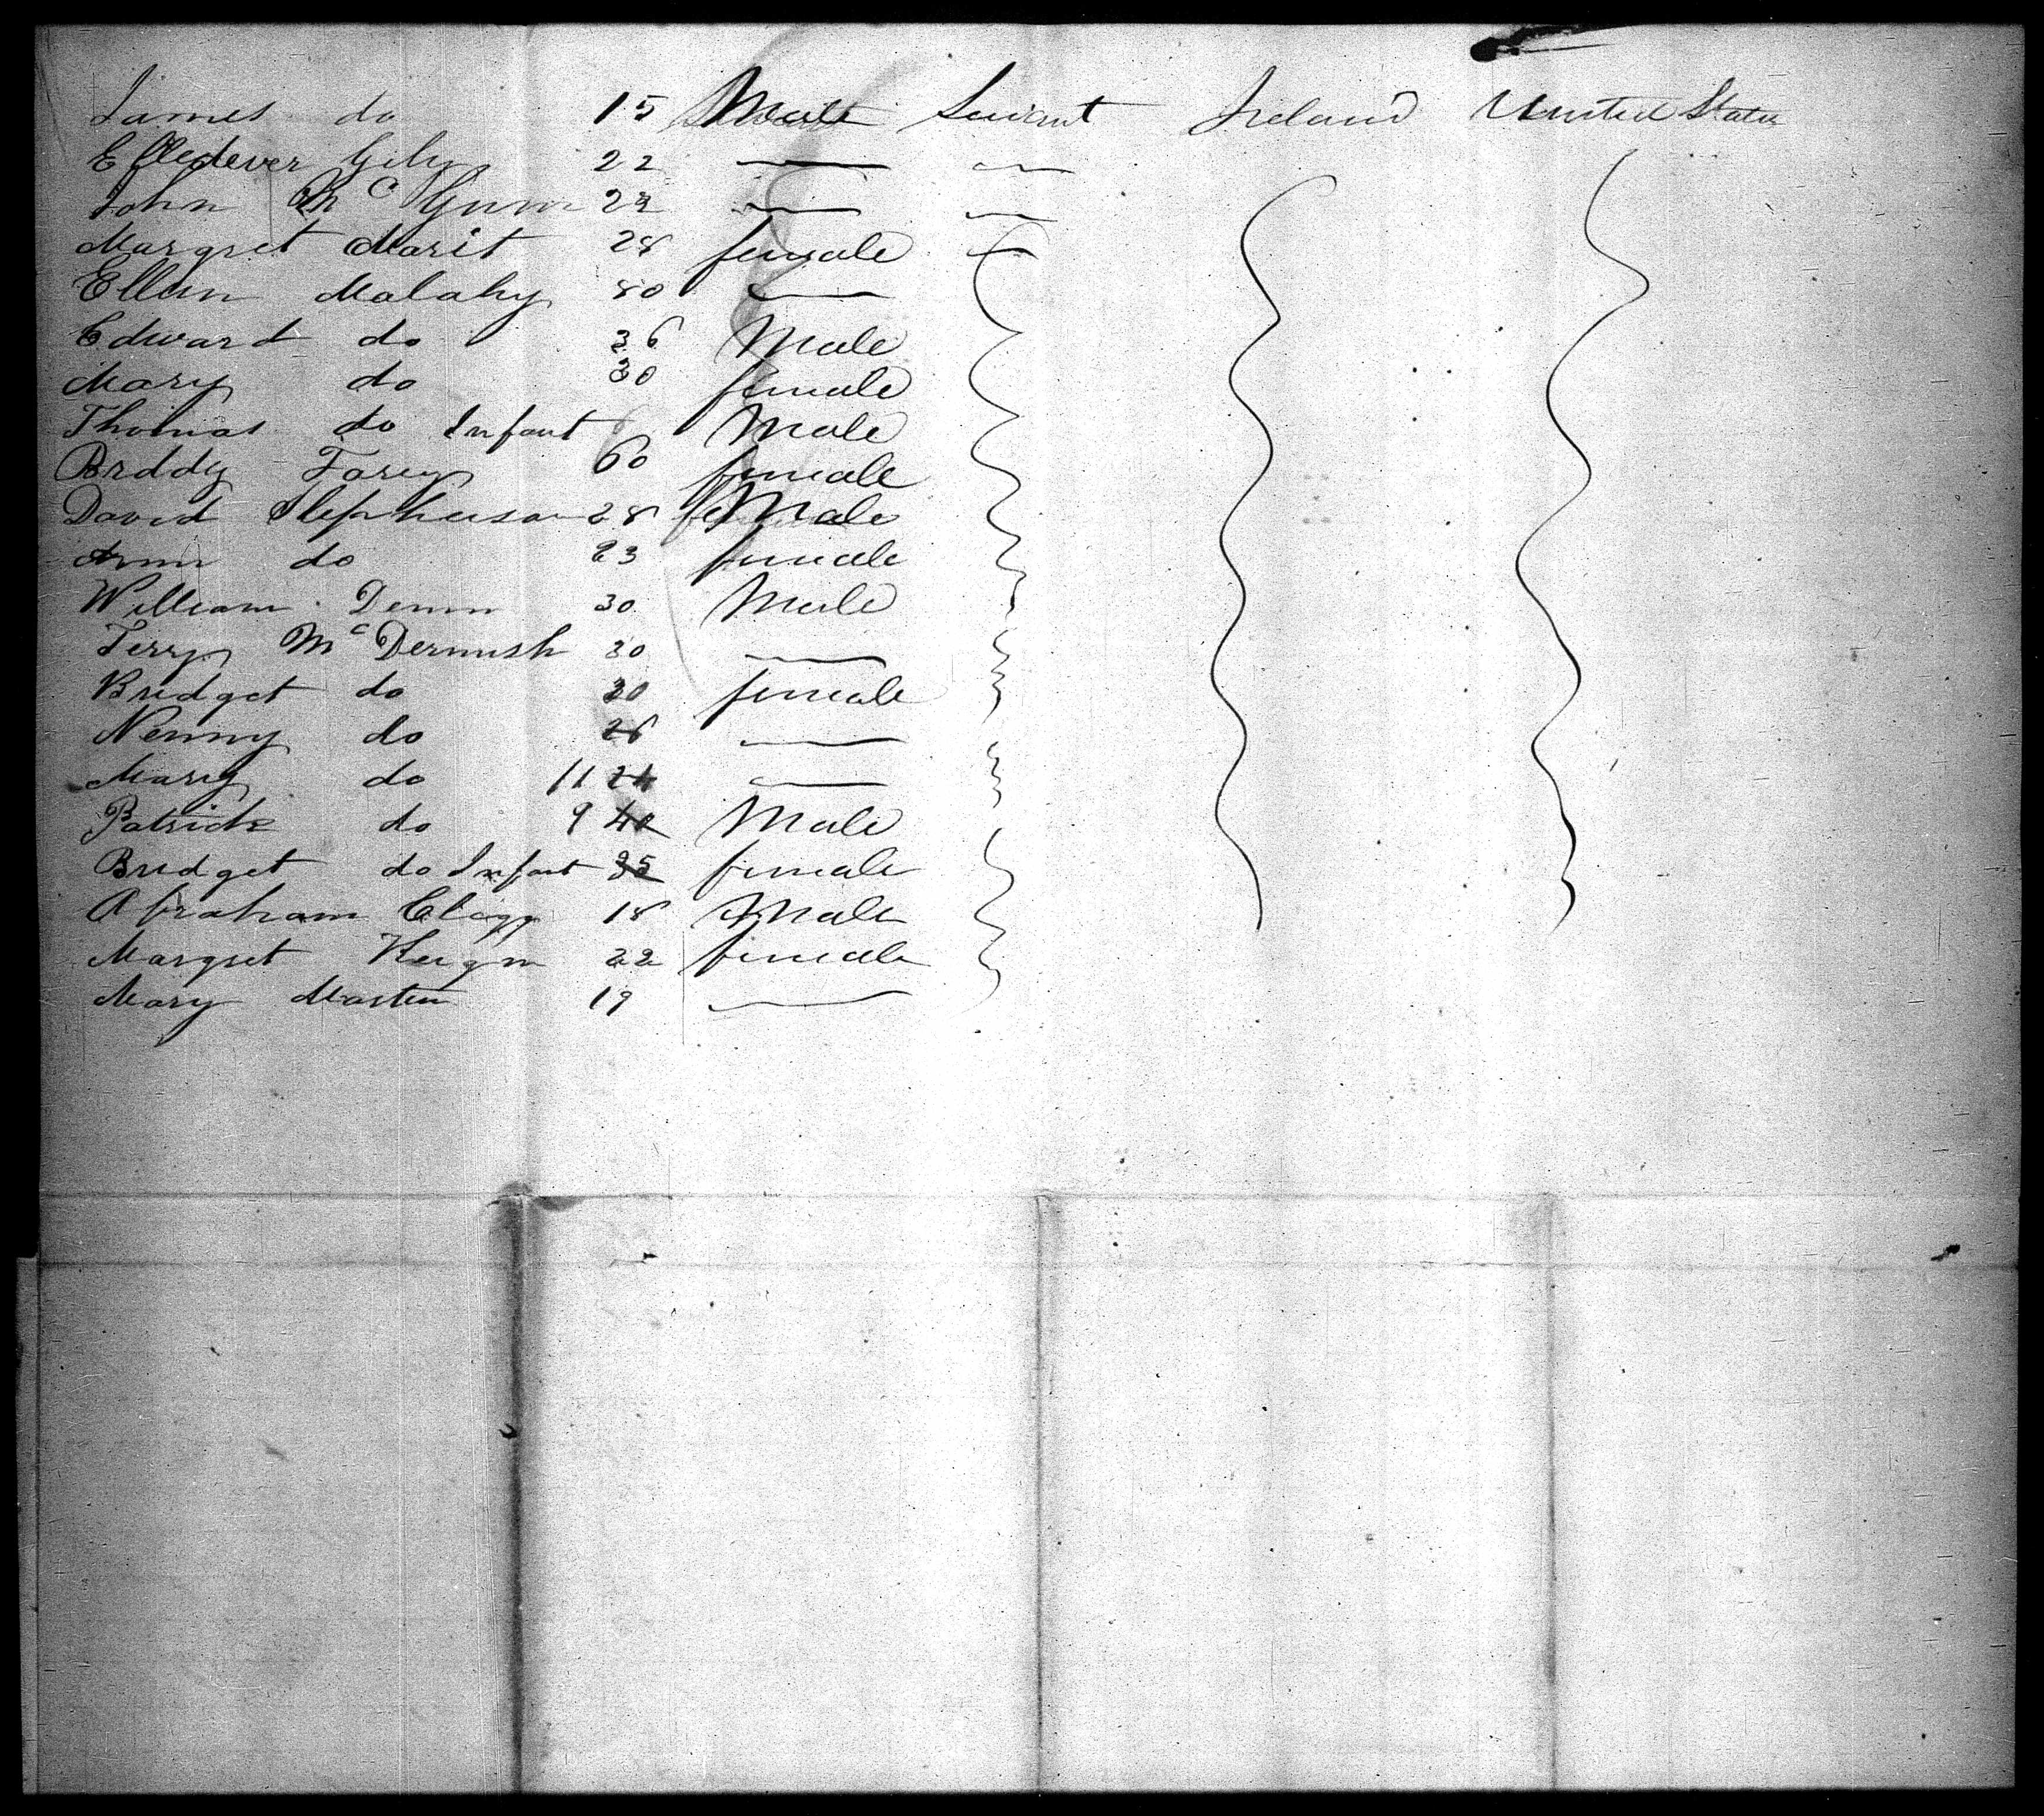 James do 15 Male Servant Ireland United States
Gily 22
John Mc Gunn 22
Margret Marit 28 female
Ellen Malahy 80
Edward do 36 Male
Mary do 30 female
Thomas do Infant Male
Briddy Farey 60 female
David Stephenson 28 Male
Ann do 23 female
William Denn 30 Male
Terry Mc Dermush 30
Bridget do 30 female
Nenny do 26
Mary do 11 24
Patrick do 9 40 Male
Bridget do Infant 35 female
Abraham Clegg 18 Male
Margret Kegn 22 female
Mary Martin 19